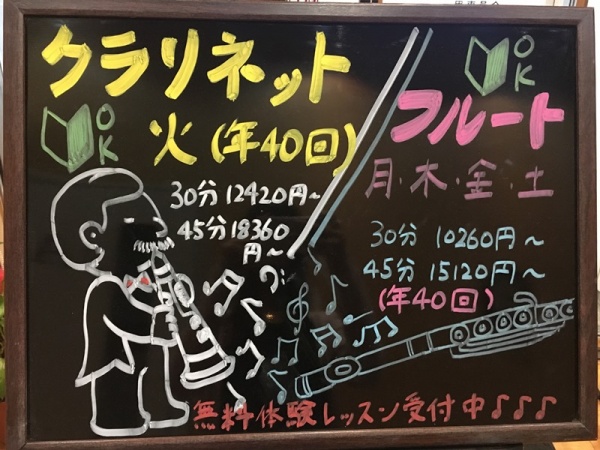 クラリネット
OK
火(年40回)
30分 12420円~
45分 18360円~
OK
フルート
月・木・金・土
30分 10260円~
45分 15120円~
(年40回)
無料体験レッスン受付中♪♪♪